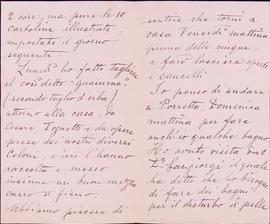 2 corr., ma pure le 10
cartoline illustrate
impostate il giorno
seguente.
Lunedì ho fatto tagliare
il così detto "guaiume"
(secondo taglio d'erba)
attorno alla casa, da
Cesare Tognetti e da opere
prese dei nostri diversi
coloni, e ieri l'hanno
raccolta e messo
insieme un buon mezzo
carro di fieno.
Abbiamo piacere di
sentire che torni a
casa Venerdì mattina
prima delle cinque,
e farò lasciare aperti
i cancelli.
Io penso di andare
a Porretta, Domenica
mattina per fare
anch'io qualche bagno.
Ho avuto visita dal
Dr. Sangiorgi il quale
ha detto che ho bisogno
di fare dei bagni
per il disturbo di pelle